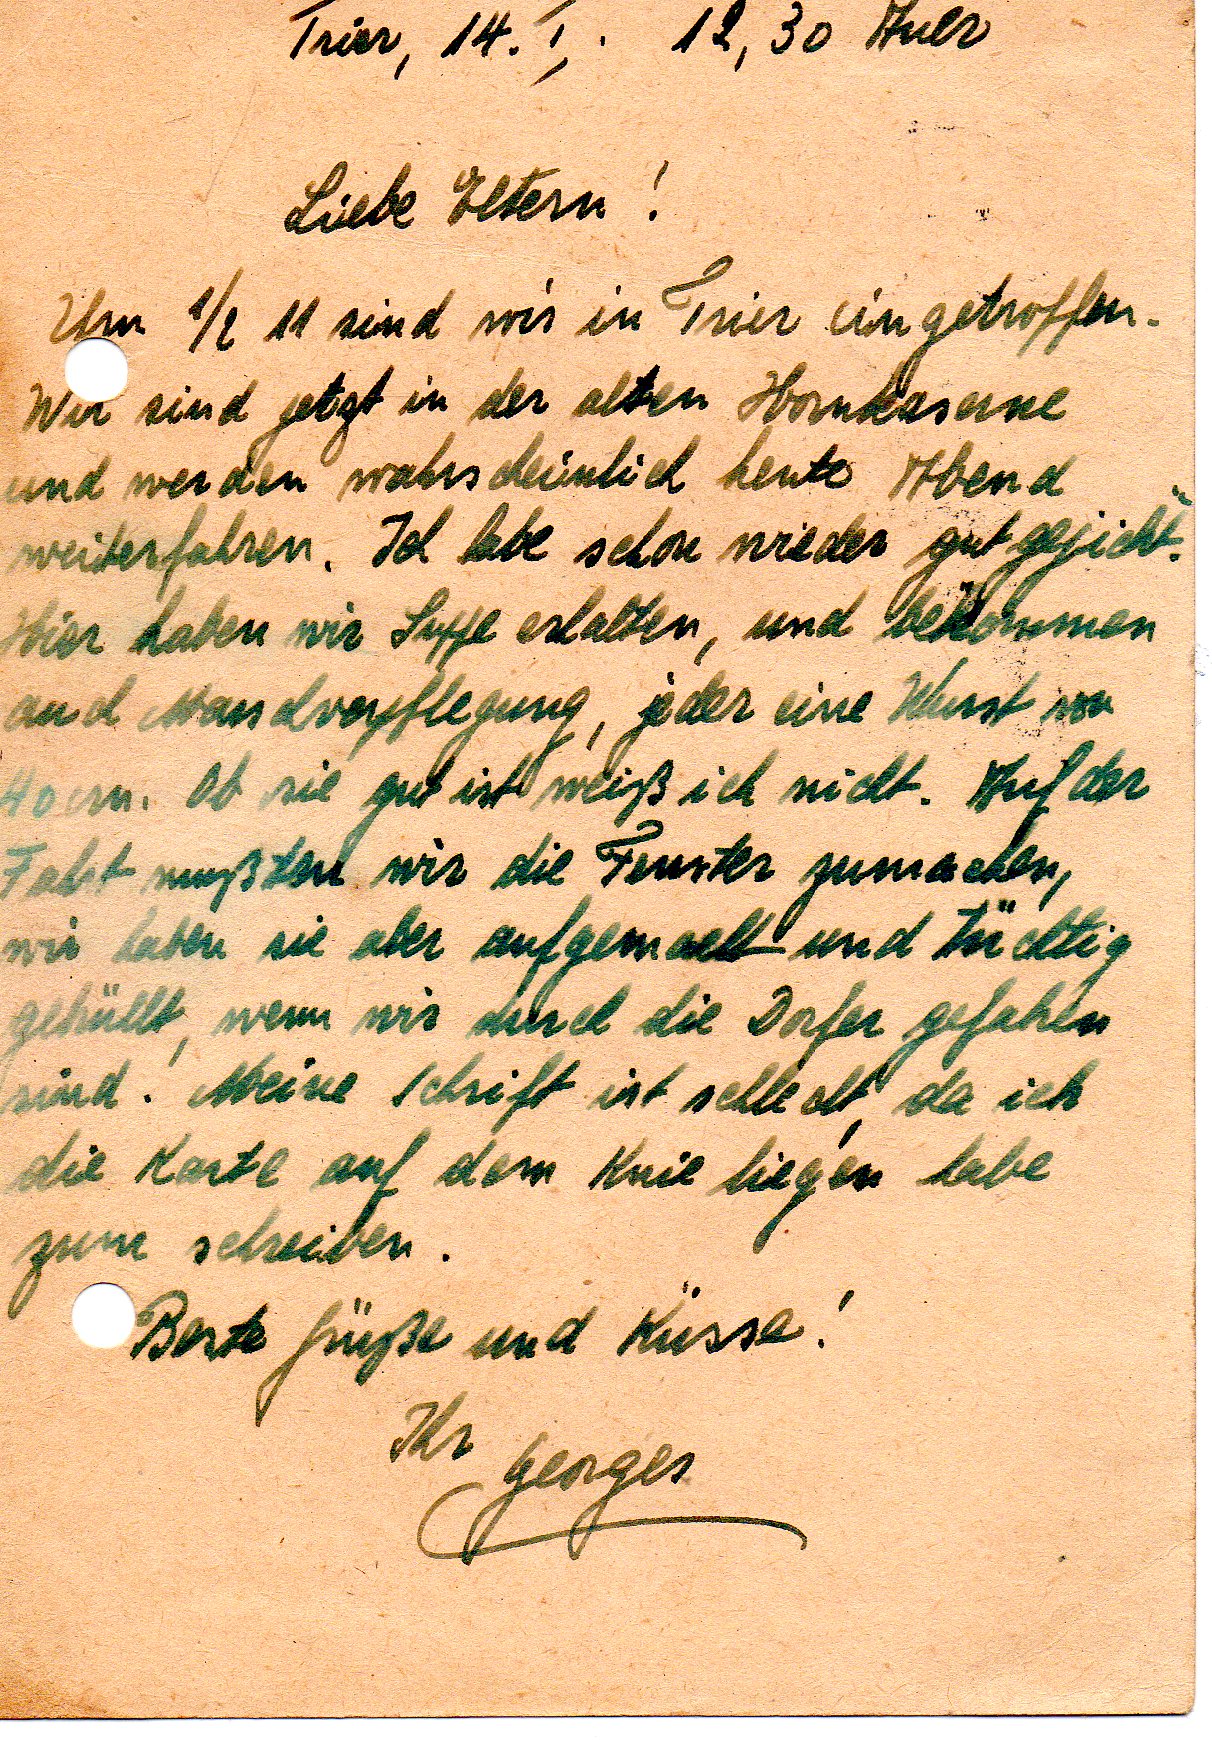 Trier, 14. I. 12,30 Auer
Liebe Eltern!
Um 1/2 11 sind wir in Trier eingetroffen.
Wir sind jetzt in der alten Hornkaserne
und werden wahrscheinlich heute Abend
weiterfahren. Ich habe schon wieder gut
Hier haben wir Suppe erhalten, und bekommen
auch Marschverpflegung, jeder eine Wurst von
40 cm. Ob sie gut ist weiß ich nicht. Auf der
Fahrt mußten wir die Fenster zumachen,
wir haben sie aber aufgemacht und tüchtig
gebrüllt, wenn wir durch die Dorfer gefahren
sind. Meine Schrift ist schlecht, da ich
die Karte auf dem Knie liegen habe
zum schreiben.
Beste Grüße und Küsse!
Ihr Georges